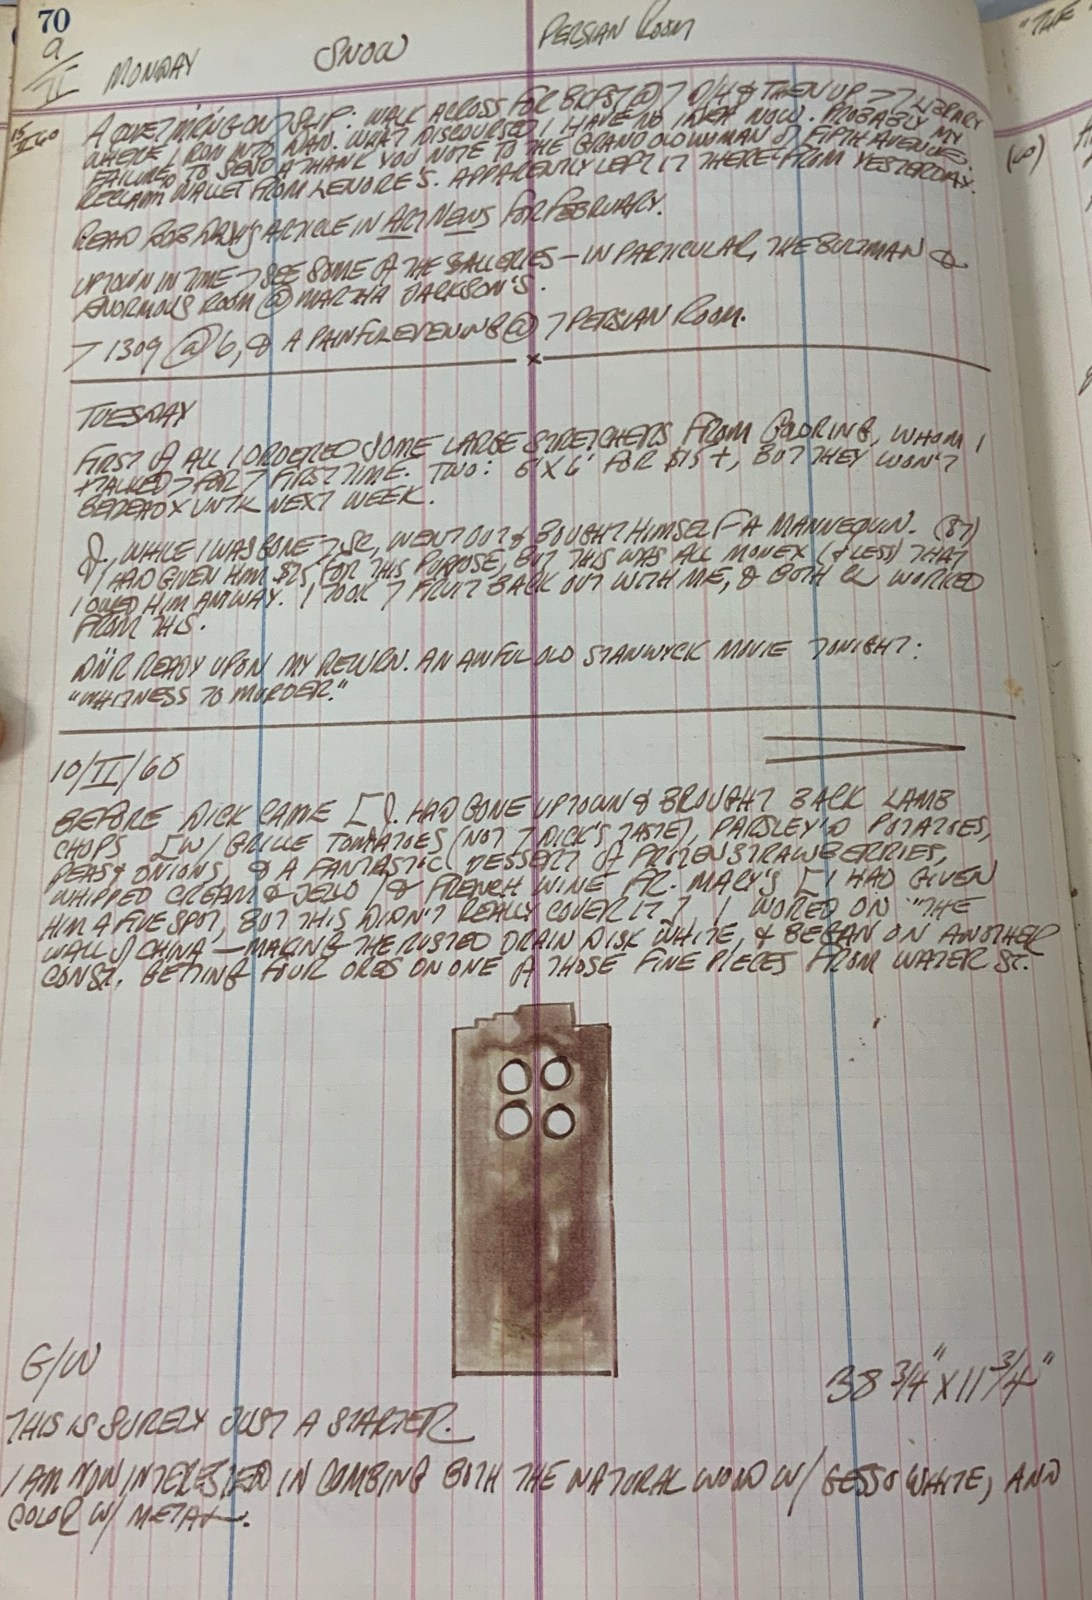 70
9/II MONDAY SNOW PERSIAN ROOM
15/II/60
A QUIET M'RNG ON SLIP: WALK ACROSS FOR BKFST @ 7 & THEN UP 7 7 LIBRARY
WHERE I RUN INTO NAN. WHAT DISCOURSED I HAVE NO IDEA NOW. PROBABLY MY
FAILURE TO SEND A THANK YOU NOTE TO THE GRAND OLD WOMAN OF FIFTH AVENUE.
RECLAIM WALLET FROM LENORE'S. APPARENTLY LEFT IT THERE FROM YESTERDAY.
READ ARTICLE IN ART NEWS FOR FEBRUARY.
UPTOWN IN TIME 7 SEE SOME OF THE GALLERIES — IN PARTICULAR, THE BULTMAN &
ENORMOUS ROOM @ MARTHA JACKSON'S.
7 1309 @ 6, & A PAINFUL EVENING @ 7 PERSIAN ROOM.
x
TUESDAY
FIRST OF ALL I ORDERED SOME LARGE STRETCHERS FROM GOLDRING, WHOM I
TALKED 7 FOR 7 FIRST TIME: TWO: 6' X 6' FOR $15+, BUT THEY WON'T
BE READY UNTIL NEXT WEEK.
J., WHILE I WAS GONE 7 SC, WENT OUT & BOUGHT HIMSELF A MANNEQUIN. (87)
I HAD GIVEN HIM $25, FOR THIS PURPOSE, BUT THIS WAS ALL MONEY (& LESS) THAT
I OWED HIM ANYWAY. I TOOK 7 FRUIT BACK OUT WITH ME, & BOTH WORKED
FROM THIS.
DINR READY UPON MY RETURN. AN AWFUL OLD STANWYCK MOVIE TONIGHT:
"WHITNESS TO MURDER."
10/II/60
BEFORE DICK CAME [J. HAD GONE UPTOWN & BROUGHT BACK LAMB
CHOPS [W/ GRILLE TOMATOES (NOT 7 DICK'S TASTE), PARSLEY'D POTATOES,
PEAS & ONIONS, & A FANTASTIC DESSERT OF FROZEN STRAWBERRIES,
WHIPPED CREAM & JELLO / & FRENCH WINE FR. MACY'S [I HAD GIVEN
HIM A FIVE SPOT, BUT THIS DIDN'T REALLY COVER IT.] I WORED ON "THE
WALL OF CHINA — MAKING THE RUSTED DRAIN DISK WHITE, & BEGAN ON ANOTHER
CONST. GETTING FOUR ORBS ON ONE OF THOSE FINE PIECES FROM WATER ST.
G/W
38 3/4" X 11 3/4"
THIS IS SURELY JUST A STARTER.
I AM NOW INTERESTED IN COMBING BOTH THE NATURAL WOOD W/ GESSO WHITE, AND
COLOR W/ METAL.
"THE
(60)